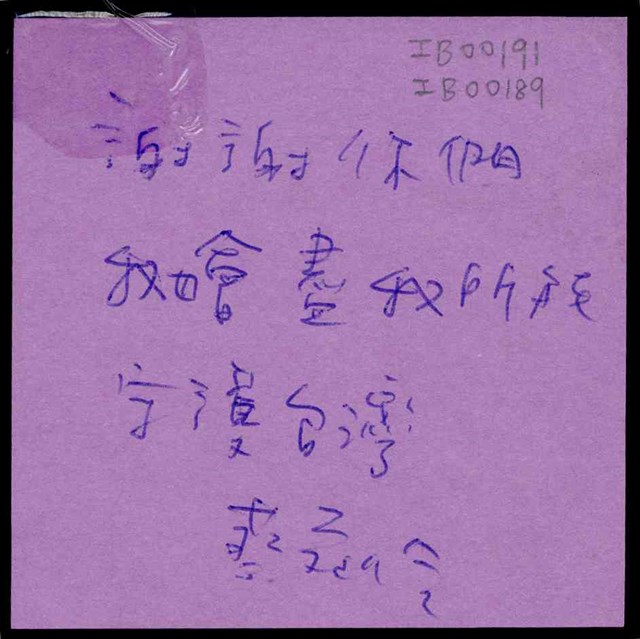 IB00191
IB00189
謝謝你們
我也會盡我所能
守護台灣